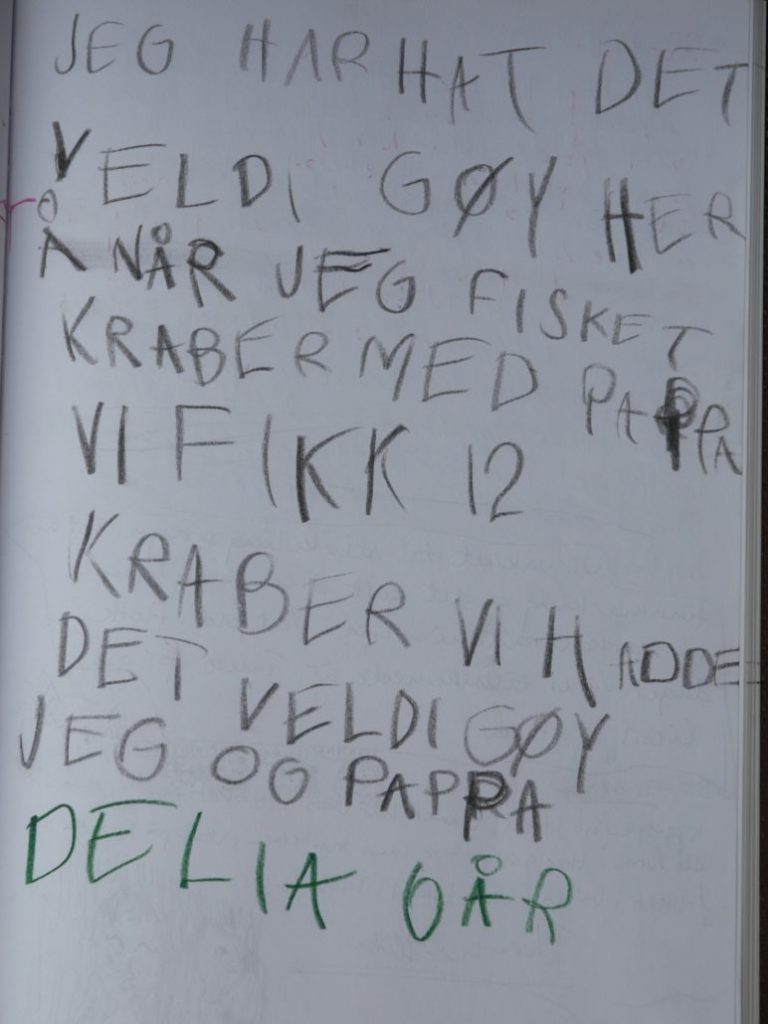 JEG HAR HAT DET
VELDI GØY HER
Å NÅR JEG FISKET
KRABER MED PAPPA
VI FIKK 12
KRABER VI HADDE
DET VELDI GØY
JEG OG PAPPA
DELIA 0ÅR